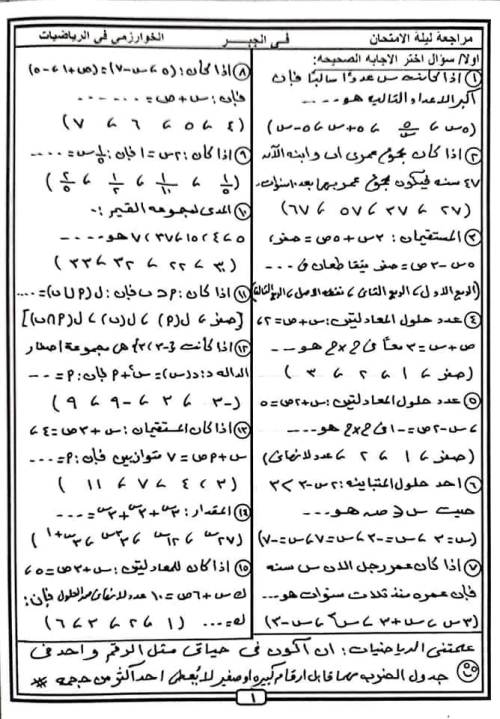 مراجعة ليلة الامتحان
فى الجبر
الخوارزمي فى الرياضيات
اولا/ سؤال اختر الاجابه الصحيحه:
① اذا كانت س عددًا سالبًا فإن
أكبر الاعداد التاليه هو....
(٥س ، ٥/س ، ٥+س ، ٥-س)
② اذا كان مجموع عمرى اب وابنه الآن
٤٧ سنه فيكون مجموع عمريهما بعد ١٠ سنوات..
(٢٧ ، ٣٧ ، ٥٧ ، ٦٧)
③ المستقيمان: ٣س+٥ص=صفر،
٥س-٣ص=صفر يتقاطعان فى...
(الربع الاول، الربع الثانى، نقطة الاصل، الربع الثالث)
④ عدد حلول المعادلتين: س+ص=٢،
ص+س=٣ معًا فى ح×ح هو...
(صفر ، ١ ، ٢ ، ٣)
⑤ عدد حلول المعادلتين: س+٢ص=٥
، س-٢ص=-١ فى ح×ح هو...
(صفر ، ١ ، ٢ ، عدد لانهائى)
⑥ احد حلول المتباينه: ٢س-٣<٣
حيث س∈صه هو...
(س=٣ ، س=-٣ ، س=٧ ، س=-٧)
⑦ اذا كان عمر رجل الان س سنه
فإن عمره منذ ثلاث سنوات هو...
(٣س ، س+٣ ، س³ ، س-٣)
⑧ اذا كان: (٥، س-٧)=(ص+١، -٥)
فإن: س+ص=......
(٤ ، ٥ ، ٦ ، ٧)
⑨ اذا كان: ٢س=١ فإن: ١/٥س=....
(١/٥ ، ١/١٠ ، ١/٢ ، ٢/٥)
⑩ المدى لمجموعه القيم:-
٥، ٤، ١٥، ٣٧، ٧ هو....
(٣٠ ، ٢٢ ، ٣٢ ، ٣٣)
⑪ اذا كان: P⊂ب فإن: ل(P∪ب)=....
[صفر ، ل(P) ، ل(ب) ، ل(P∩ب)]
⑫ اذا كانت {-٣، ٣} هى مجموعة اصفار
الداله د: د(س)=س²+P فإن: P=...
(-٣ ، ٣ ، -٩ ، ٩)
⑬ اذا كان المستقيمان: س+٣ص=٤،
س+Pص=٧ متوازيين فإن: P=...
(٣ ، ٤ ، ٧ ، ١١)
⑭ المقدار: ٣س+٣س+٣س=...
(٢٧س ، ١٢س ، ٣س ، ٣س+١)
⑮ اذا كان للمعادلتين: س+٣ص=٥،
ك س+٦ص=١٠ عدد لانهائى من الحلول فإن:
ك=... (١ ، ٢ ، ٣ ، ٦)
علمتنى الرياضيات: ان أكون فى حياتى مثل الرقم واحد فى
جدول الضرب مهما قابل ارقام كبيره او صغيره لا يُعطى احد اكثر من حجمه *
١